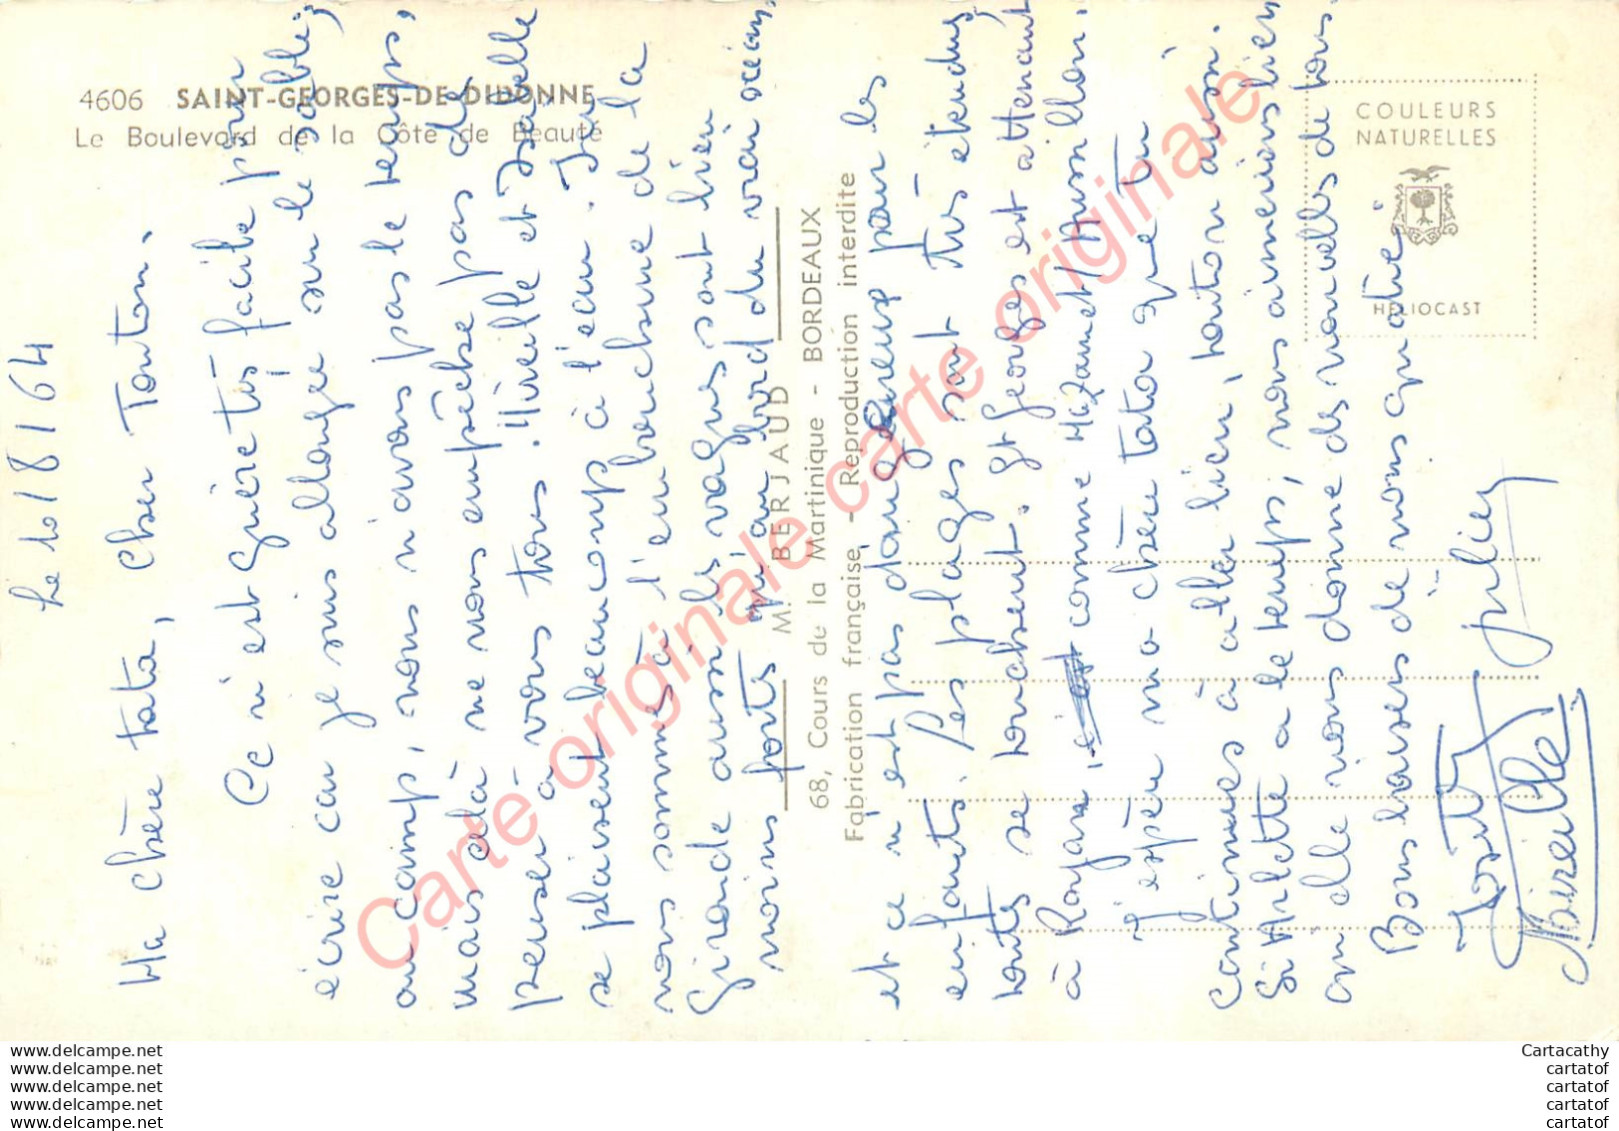 4606 SAINT-GEORGES-DE-DIDONNE
Le Boulevard de la Côte de Beauté
COULEURS
NATURELLES
HELIOCAST
M. BERJAUD
68, Cours de la Martinique - BORDEAUX
Fabrication française - Reproduction interdite
Le 10/8/64
Ma chère tata, cher Tonton.
Ce n'est guère très facile pour
écrire car je suis allongée sur le sable;
au camp, nous n'avons pas le temps,
mais celà ne nous empêche pas de
penser à vous tous. Mireille et Isabelle
se plaisent beaucoup à l'eau. Ici
nous sommes à l'embouchure de la
Gironde aussi les vagues sont bien
moins forts qu'au bord du vrai océan,
et ce n'est pas dangereux pour les
enfants. Les plages sont très étendus,
touts se touchent. St Georges est attenant
à Royan, comme Mazamet/Aussillon.
J'espère ma chère tata que tu
continues à aller bien, tonton aussi.
Si Arlette a le temps, nous aimerions bien
qu'elle nous donne des nouvelles de tous.
Bons baisers de nous quatre.
julien
Mireille
Carte originale carte originale carte originale
www.delcampe.net
www.delcampe.net
www.delcampe.net
www.delcampe.net
www.delcampe.net
Cartacathy
cartatof
cartatof
cartatof
cartatof